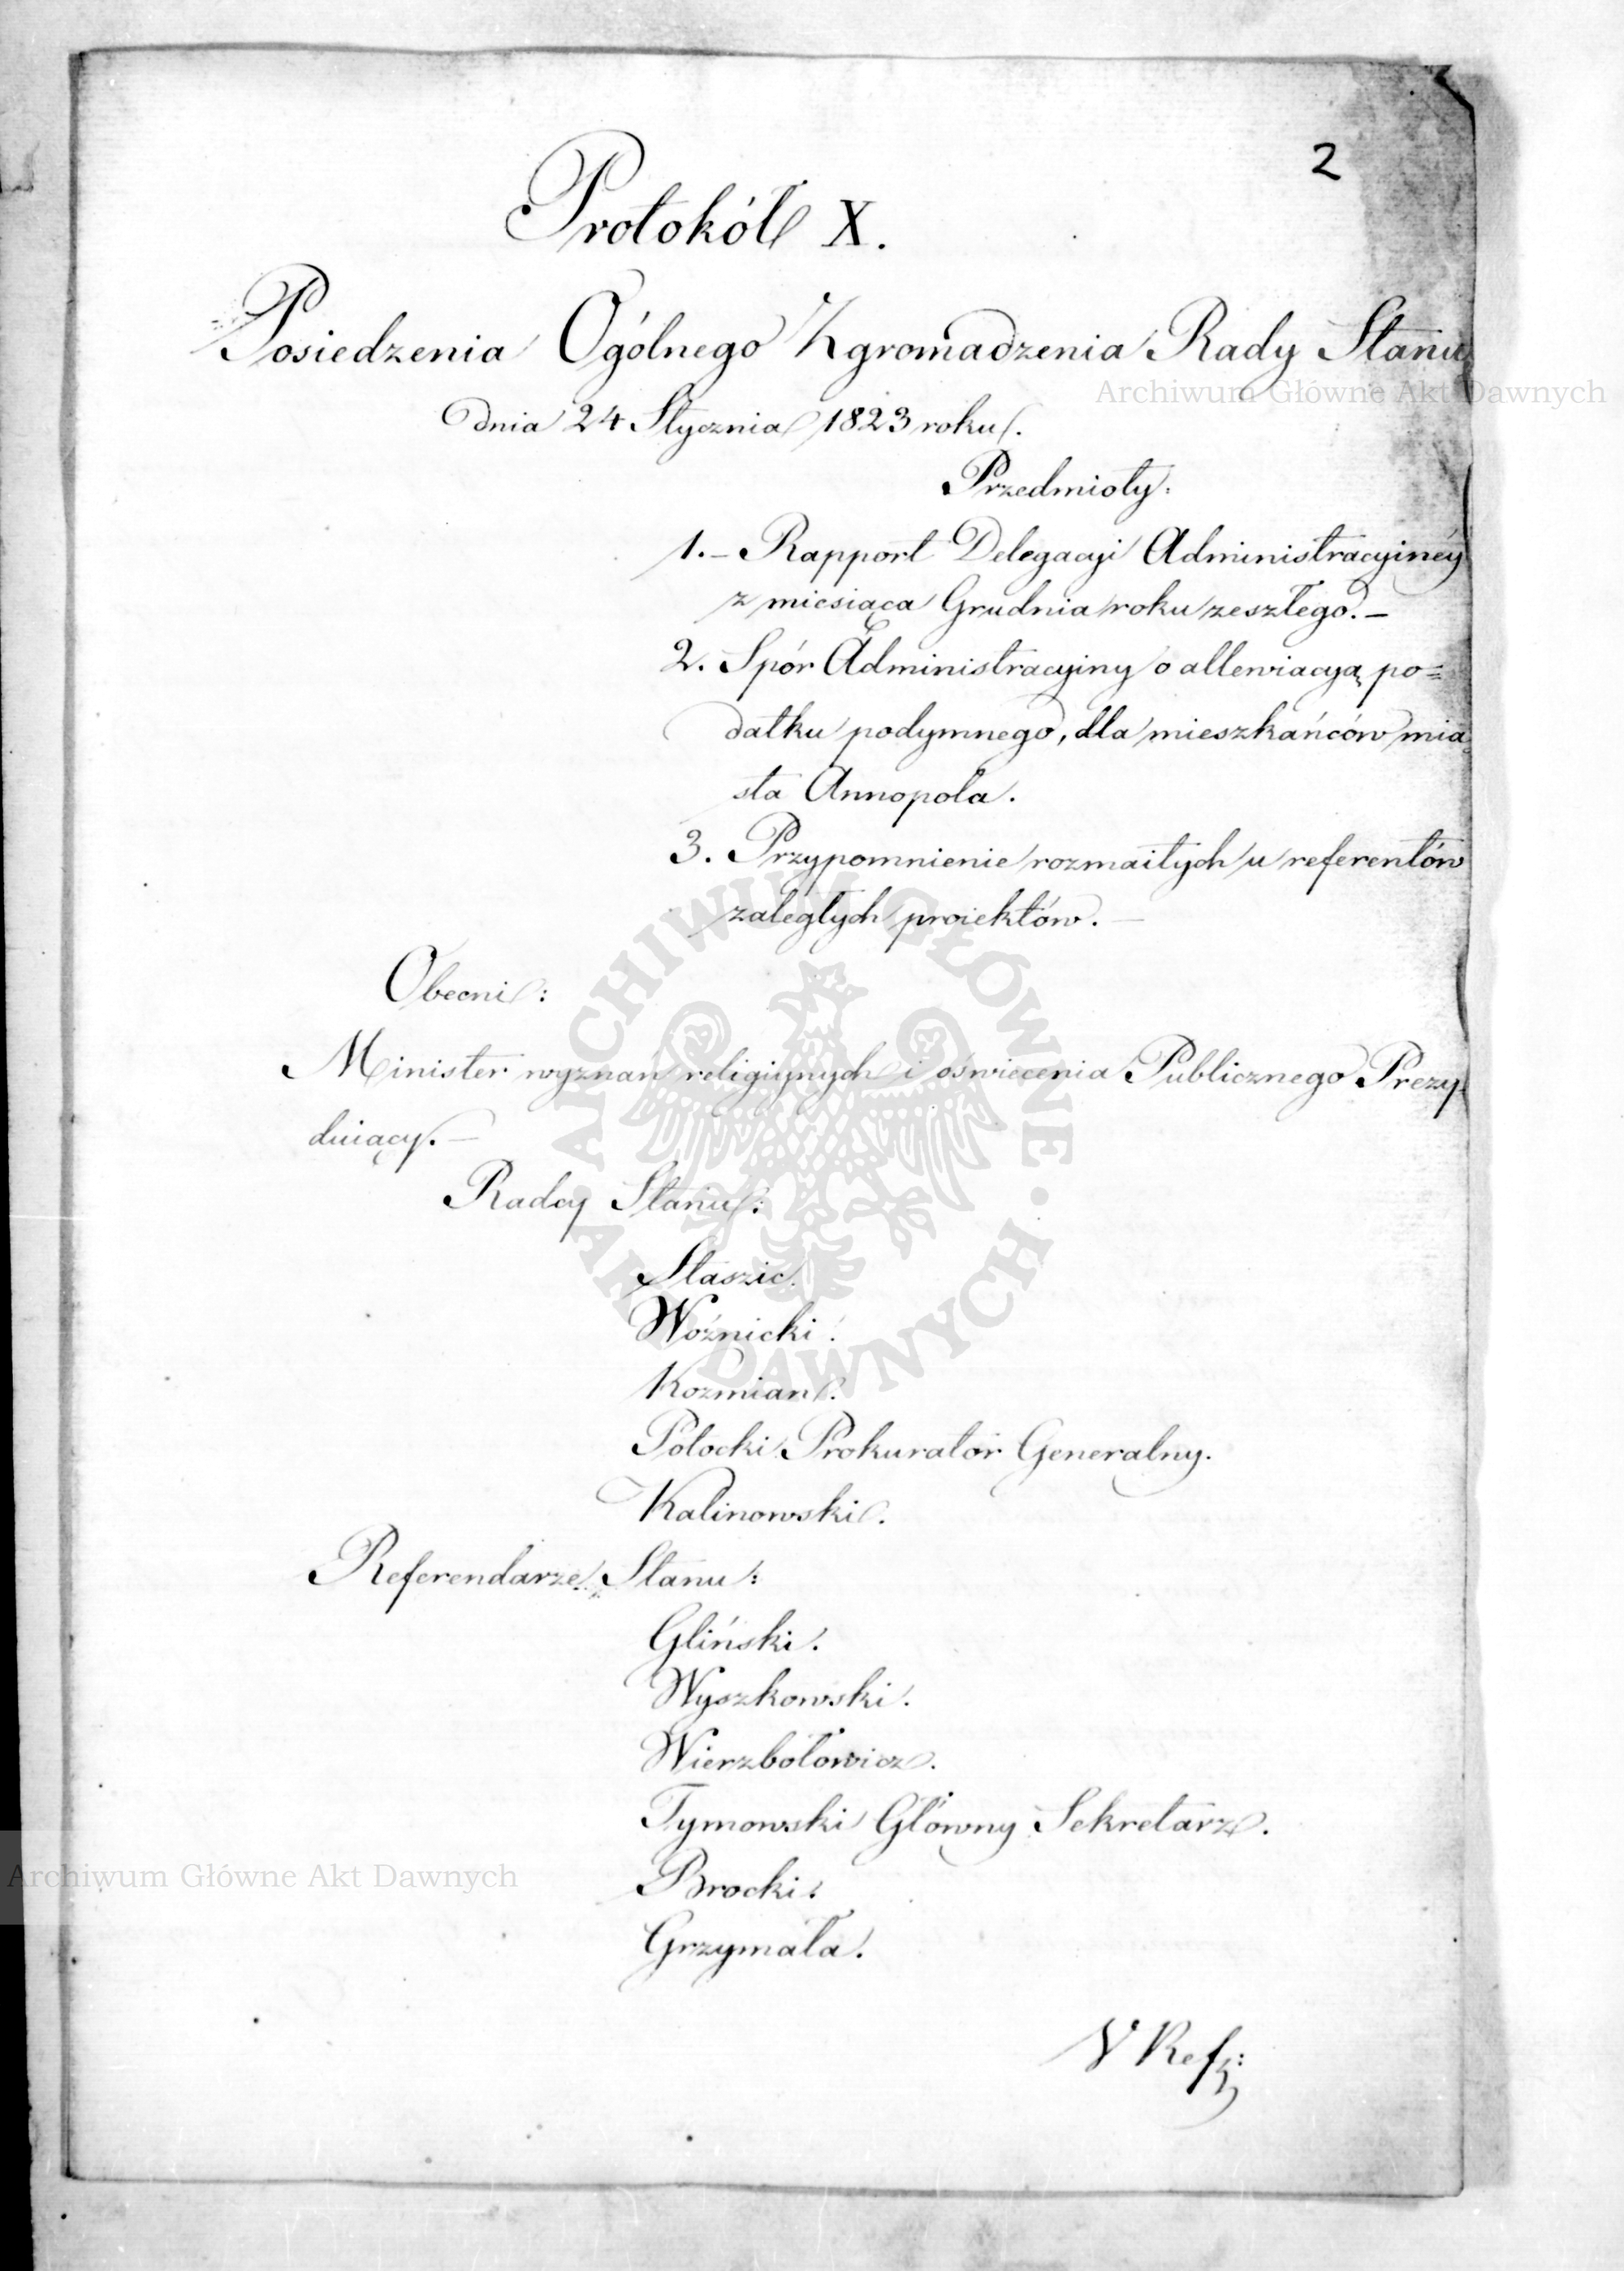 2
Protokół X.
Posiedzenia Ogólnego Zgromadzenia Rady Stanu
dnia 24 Stycznia 1823 roku.
Archiwum Główne Akt Dawnych
Przedmioty:
1. – Rapport Delegacyi Administracyiney
z miesiąca Grudnia roku zeszłego. –
2. Spór Administracyiny o allewiacyą po=
datku podymnego, dla mieszkańców mia
sta Annopola.
3. Przypomnienie rozmaitych u referentów
zaległych proiektów. –
Obecni:
Minister wyznań religiynych i oświecenia Publicznego Prezy
duiący. –
Radcy Stanu:
Staszic.
Woźnicki.
Kozmian.
Potocki Prokurator Generalny.
Kalinowski.
Referendarze Stanu:
Gliński.
Wyszkowski.
Wierzbołowicz.
Tymowski Główny Sekretarz.
Brocki.
Grzymała.
ARCHIWUM GŁÓWNE AKT DAWNYCH
Archiwum Główne Akt Dawnych
V Ref: